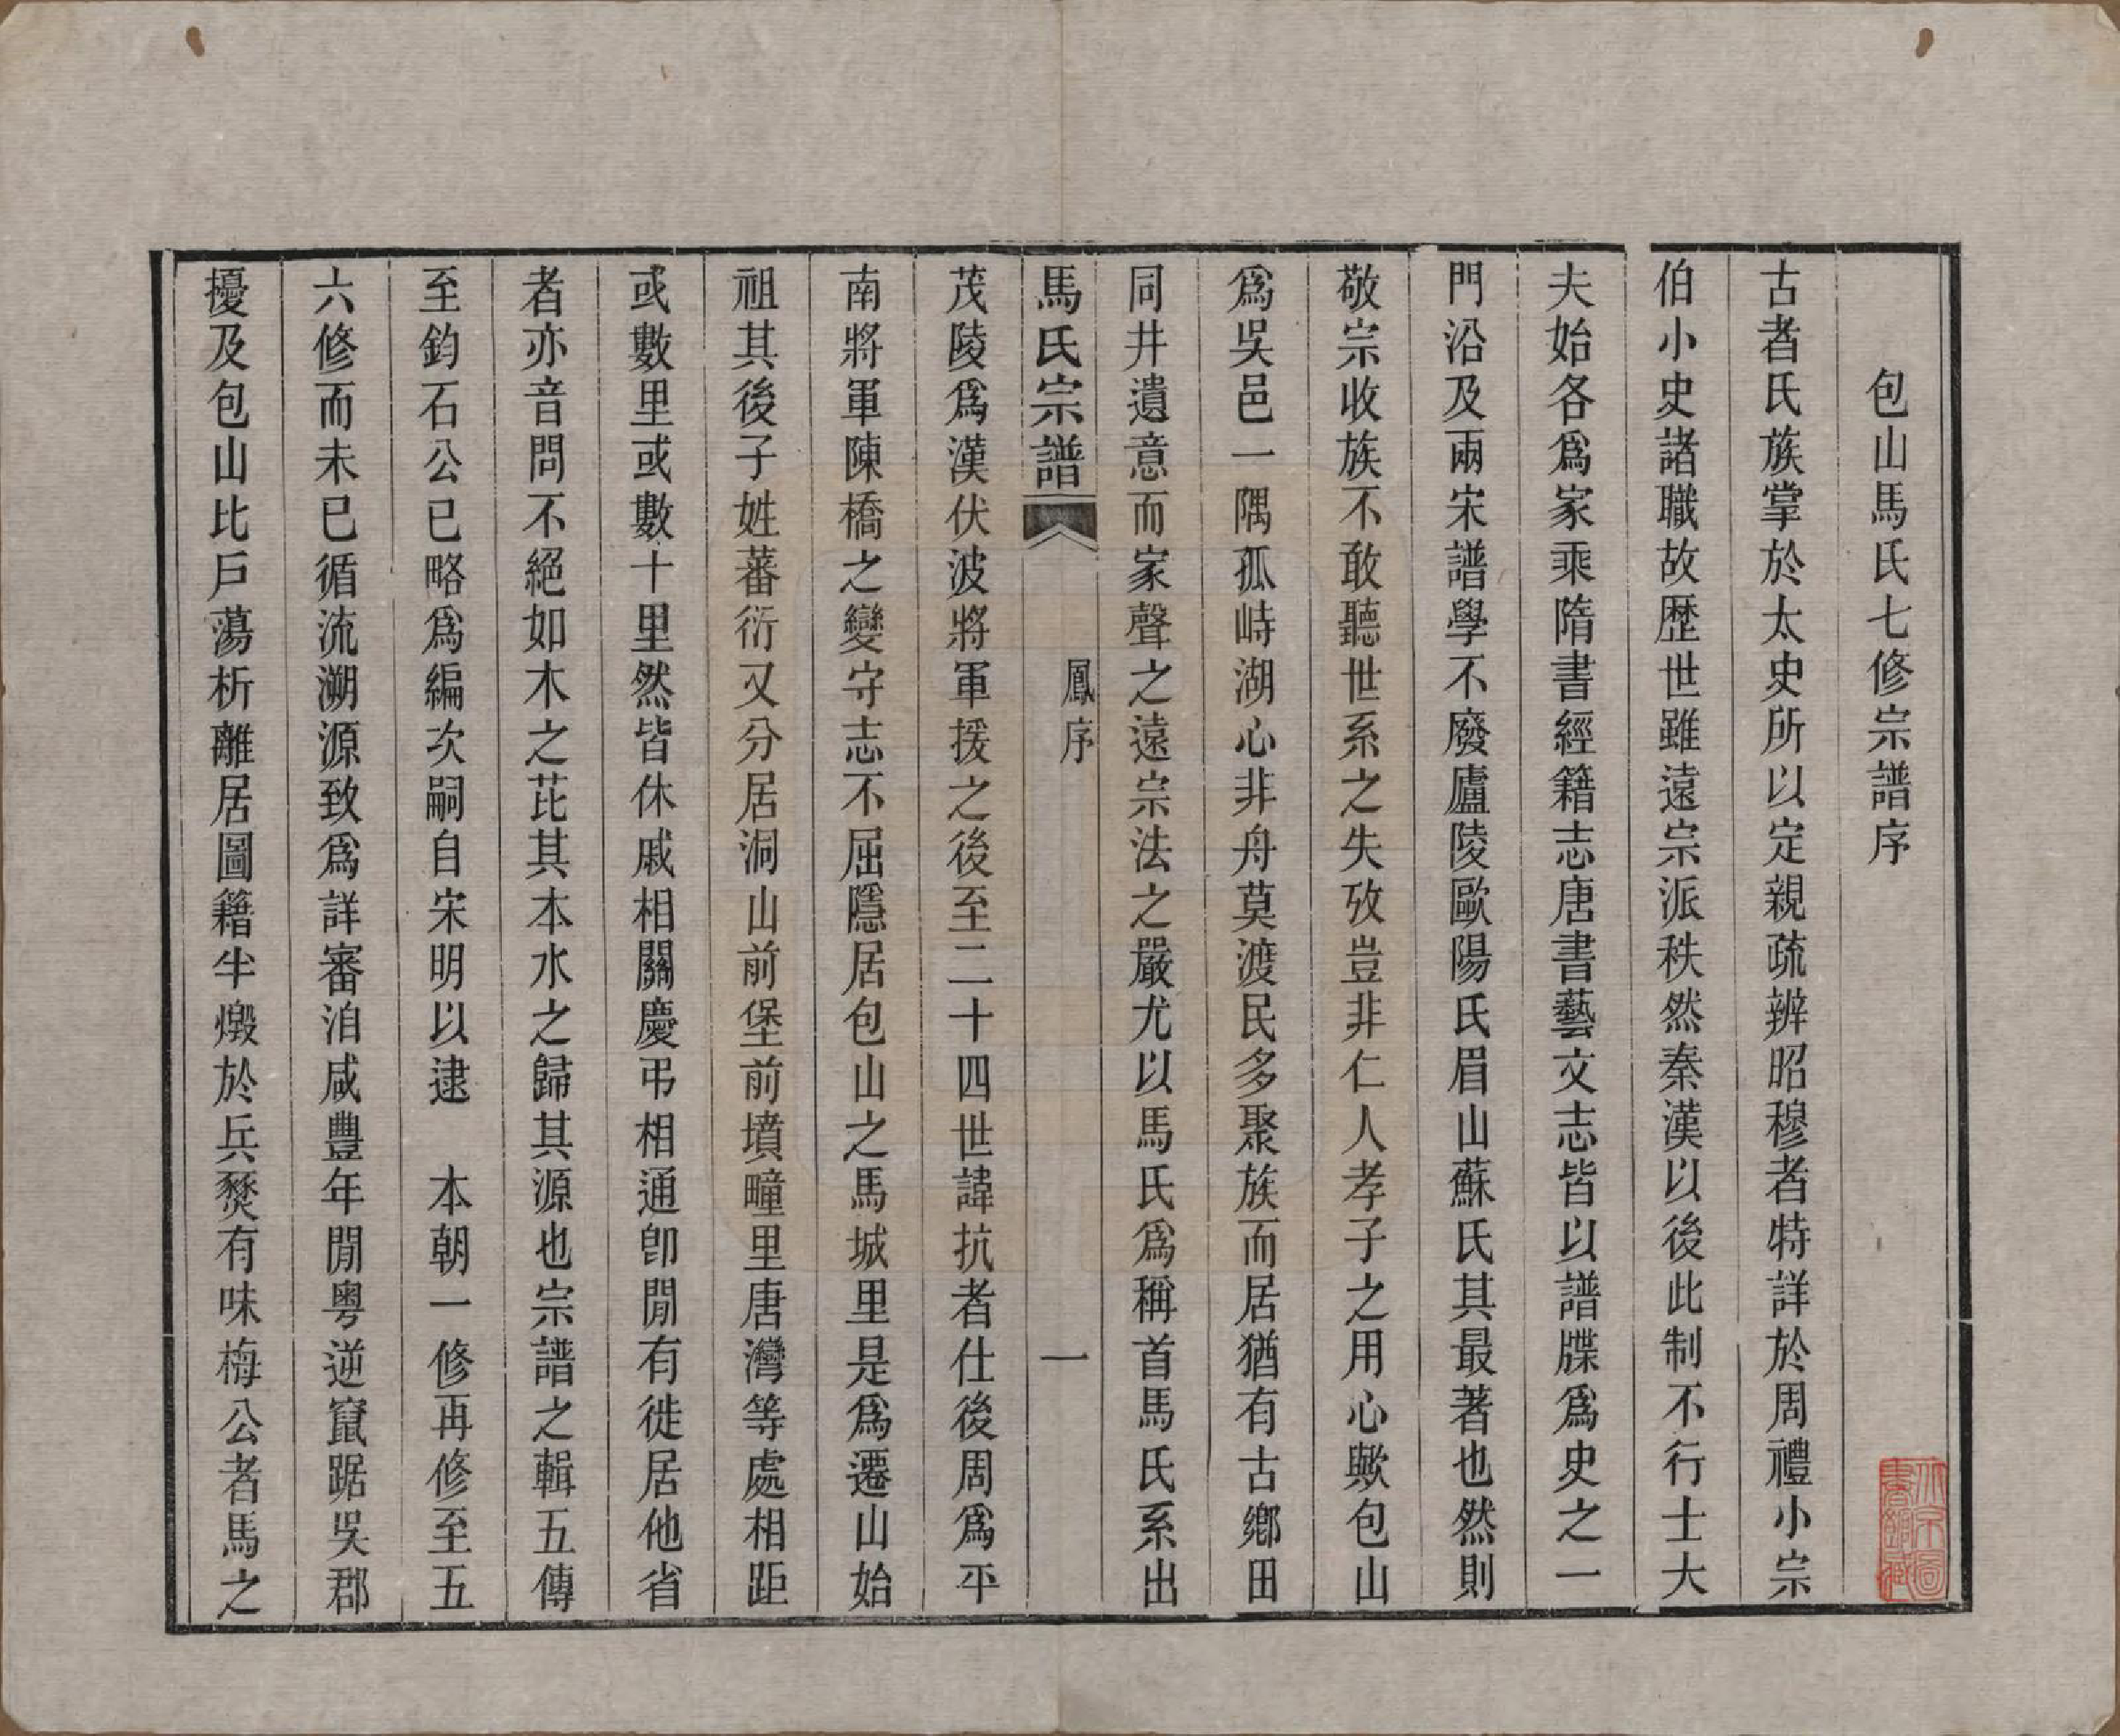 包山馬氏七修宗譜序
古者氏族掌於太史所以定親疏辨昭穆者特詳於周禮小宗
伯小史諸職故歷世雖遠宗派秩然秦漢以後此制不行士大
夫始各爲家乘隋書經籍志唐書藝文志皆以譜牒爲史之一
門沿及兩宋譜學不廢廬陵歐陽氏眉山蘇氏其最著也然則
敬宗收族不敢聽世系之失攷豈非仁人孝子之用心歟包山
爲吳邑一隅孤峙湖心非舟莫渡民多聚族而居猶有古鄉田
同井遺意而家聲之遠宗法之嚴尤以馬氏爲稱首馬氏系出
馬氏宗譜 鳳序 一
茂陵爲漢伏波將軍援之後至二十四世諱抗者仕後周爲平
南將軍陳橋之變守志不屈隱居包山之馬城里是爲遷山始
祖其後子姓蕃衍又分居洞山前堡前墳疃里唐灣等處相距
或數里或數十里然皆休戚相關慶弔相通卽閒有徙居他省
者亦音問不絕如木之芘其本水之歸其源也宗譜之輯五傳
至鈞石公已略爲編次嗣自宋明以逮　本朝一修再修至五
六修而未已循流溯源致爲詳審洎咸豐年閒粵逆竄踞吳郡
擾及包山比戶蕩析離居圖籍半燬於兵燹有味梅公者馬之
大本圖
書館藏